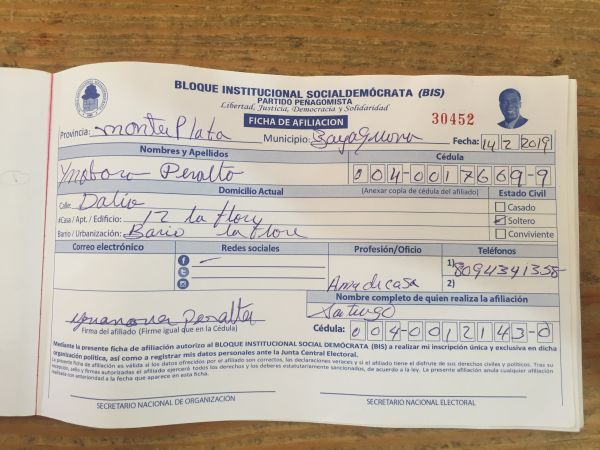 BLOQUE INSTITUCIONAL SOCIALDEMÓCRATA (BIS)
PARTIDO PENAGOMISTA
Libertad, Justicia, Democracia y Solidaridad
FICHA DE AFILIACION
30452
Provincia: Monte Plata Municipio: Bayaguana Fecha: 14 2 2019
Nombres y Apellidos Cédula
Peralto 004-0017669-9
Domicilio Actual (Anexar copia de cédula del afiliado) Estado Civil
Calle: Dalio Casado
#Casa / Apt. / Edificio: 12 la flory Soltero
Barrio / Urbanización: Bario la flore Conviviente
Correo electrónico Redes sociales Profesión/Oficio Teléfonos
1) 8094341358
Ama de casa 2)
Nombre completo de quien realiza la afiliación
Peralta Santiago
Firma del afiliado (Firme igual que en la Cédula) Cédula: 004-0012143-0
Mediante la presente ficha de afiliación autorizo al BLOQUE INSTITUCIONAL SOCIAL DEMÓCRATA (BIS) a realizar mi inscripción única y exclusiva en dicha
organización política, así como a registrar mis datos personales ante la Junta Central Electoral.
La presente ficha de afiliación es válida si los datos ofrecidos por el afiliado son correctos, las declaraciones veraces y si el afiliado tiene el disfrute de sus derechos civiles y políticos. Tras su
recepción, sello y firmas autorizadas el afiliado ejercerá todos los derechos y los deberes estatutariamente sancionados, de acuerdo a la ley. La presente afiliación anula cualquier afiliación
realizada con anterioridad a la fecha que aparece en esta ficha.
SECRETARIO NACIONAL DE ORGANIZACIÓN SECRETARIO NACIONAL ELECTORAL